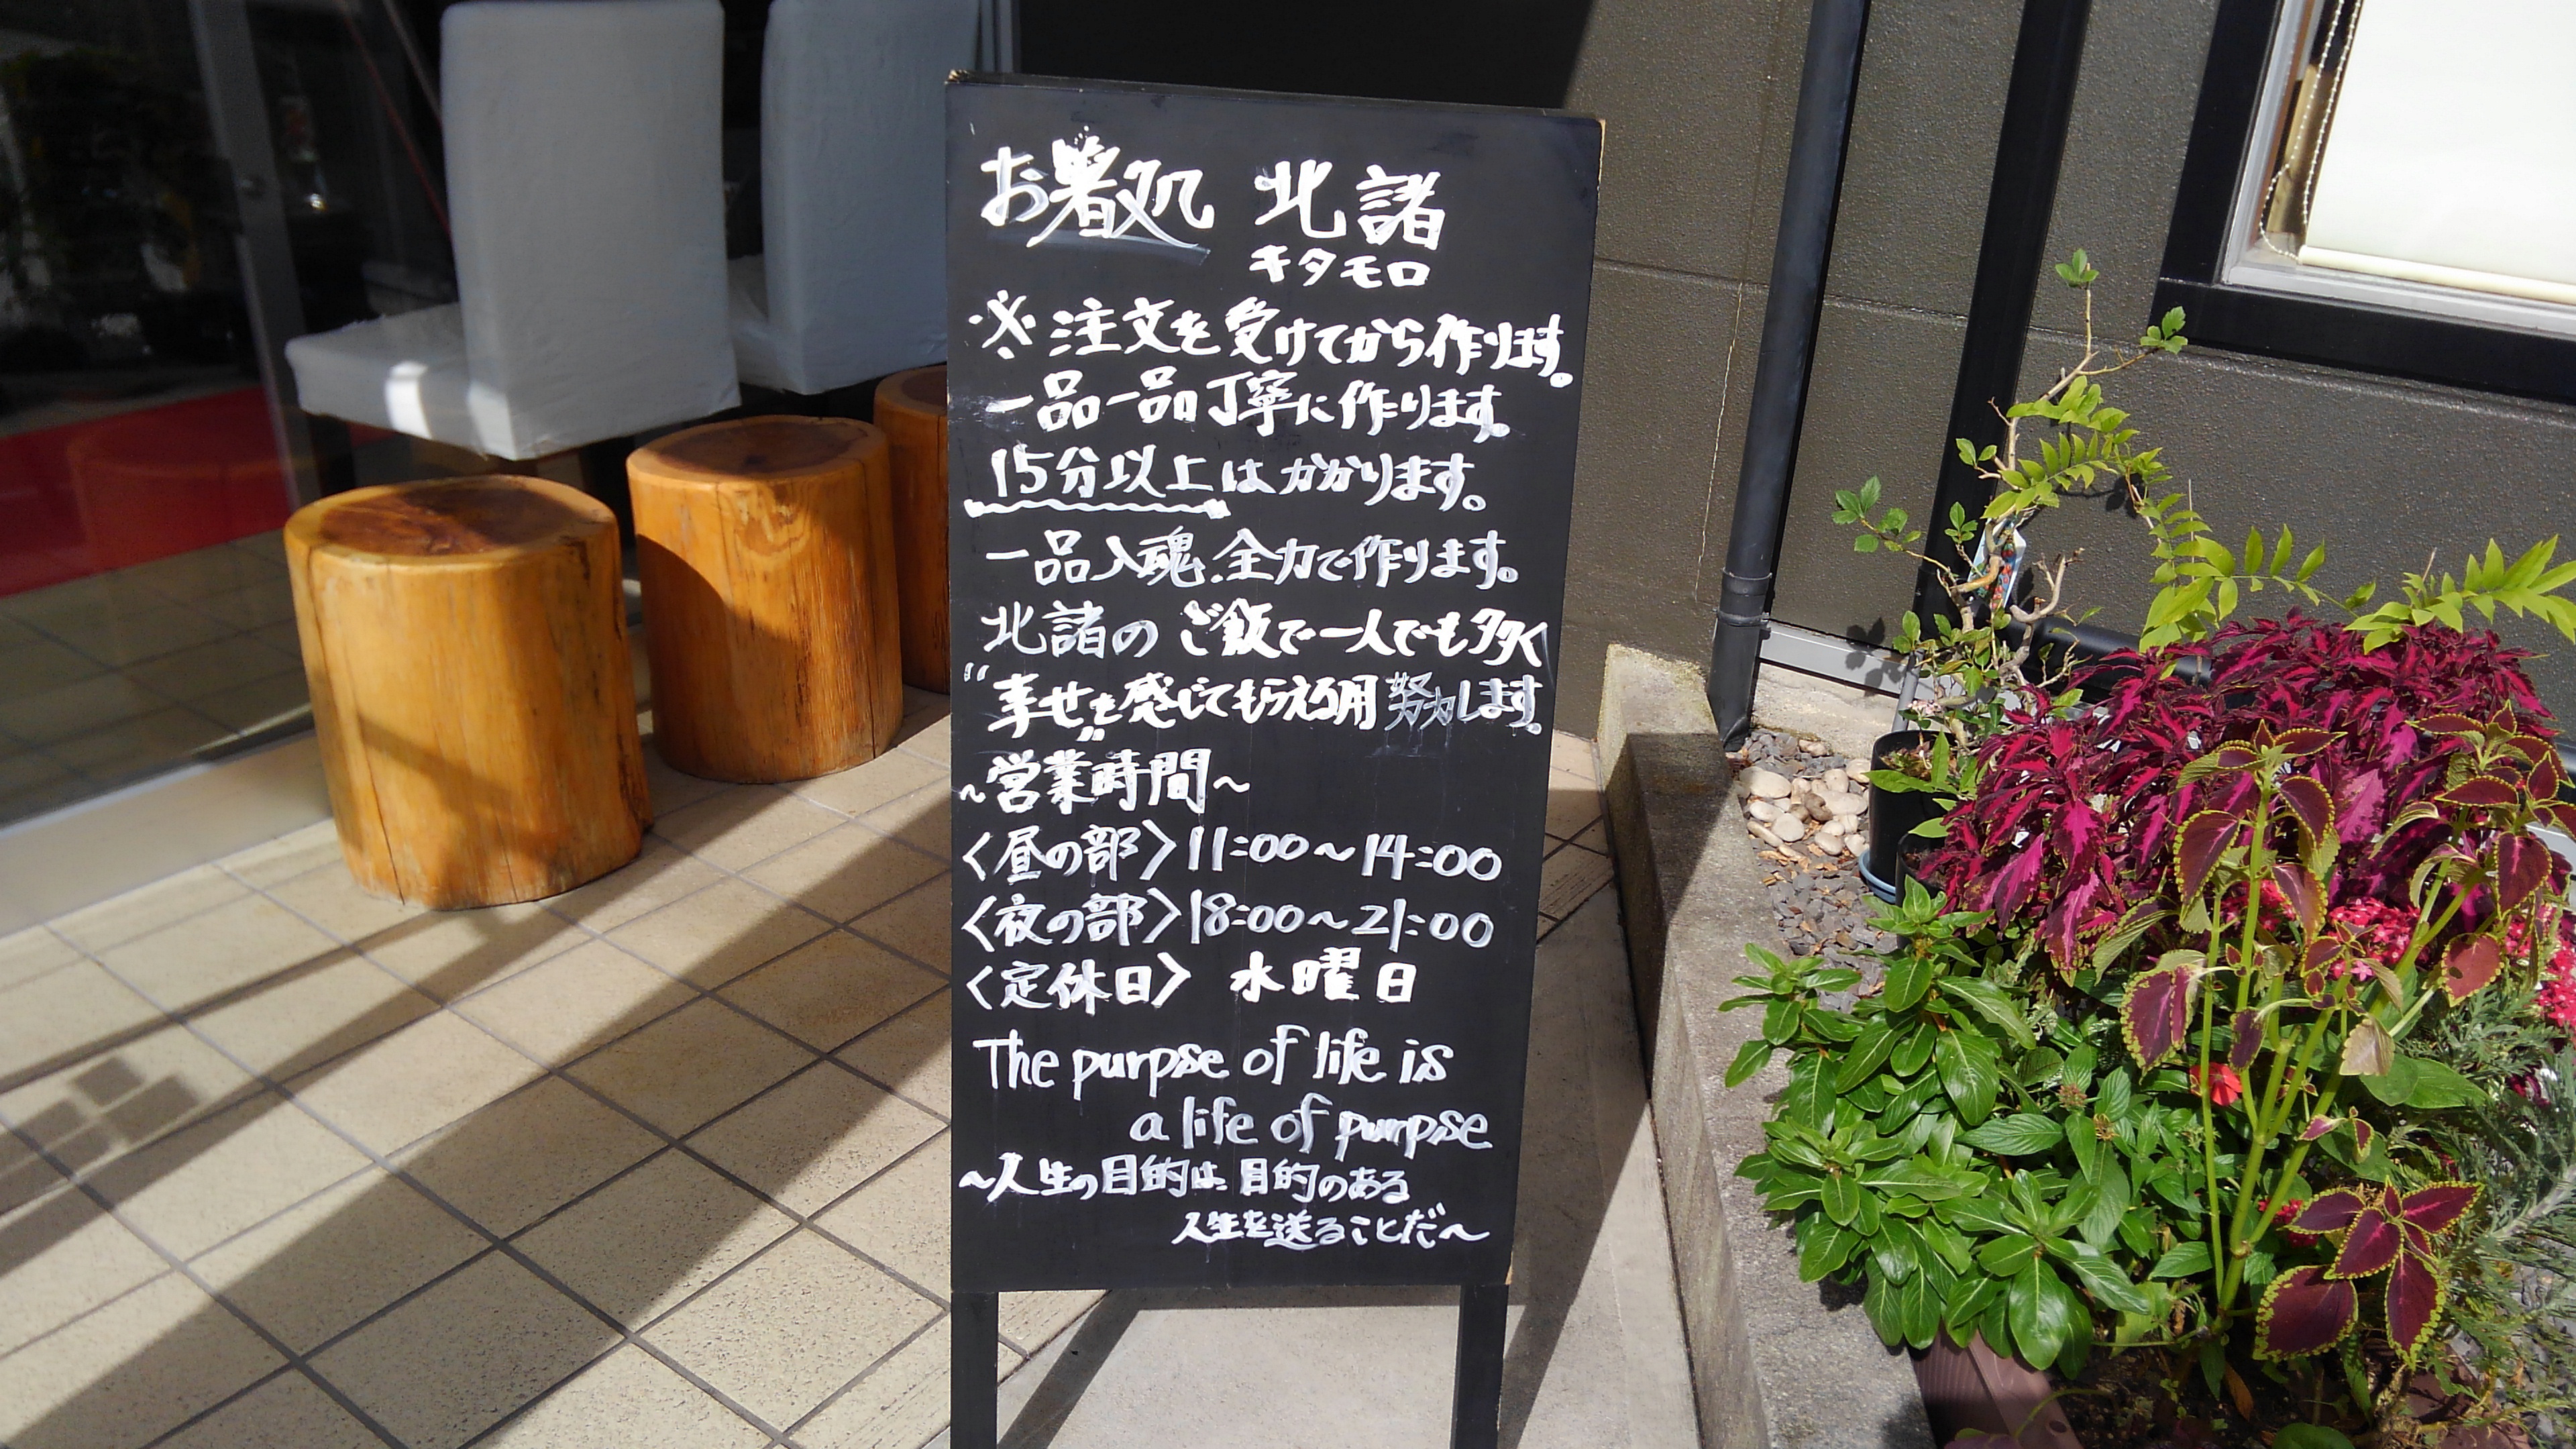 お箸処 北諸
キタモロ
※注文を受けてから作ります。
一品一品丁寧に作ります。
15分以上はかかります。
一品入魂.全力で作ります。
北諸のご飯で一人でも多く
“幸せ”を感じてもらえる用努力します。
～営業時間～
〈昼の部〉11:00～14:00
〈夜の部〉18:00～21:00
〈定休日〉 水曜日
The purpse of life is
a life of purpse
～人生の目的は、目的のある
人生を送ることだ～